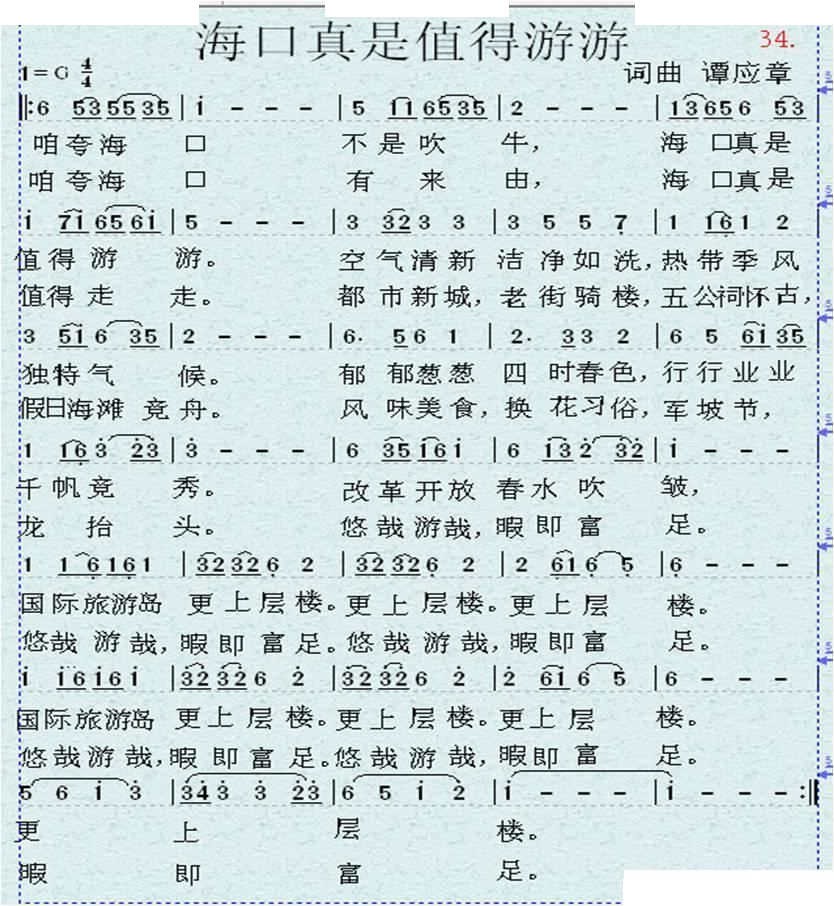 海口真是值得游游
34.
1=G 4/4
词曲 谭应章
‖:6 535535 | i - - - | 5 116535 | 2 - - - | 13656 53 |
咱夸海 口 不是吹 牛， 海 口真是
咱夸海 口 有 来 由， 海 口真是
i 7i656i | 5 - - - | 3 323 3 | 3 5 5 7 | 1 161 2
值得游 游。 空气清新 洁净如洗，热带季风
值得走 走。 都市新城，老街骑楼，五公祠怀古，
3 5i6 35 | 2 - - - | 6· 56 1 | 2· 33 2 | 6 5 6i35
独特气 候。 郁 郁葱葱 四 时春色，行行业业
假日海滩 竞舟。 风 味美食，换 花习俗，军坡节，
1 163 23 | 3 - - - | 6 35i6i | 6 i32 32 | i - - -
千帆竞 秀。 改革开放 春水吹 皱，
龙 抬 头。 悠哉游哉，暇即富 足。
1 1 6161 | 32326 2 | 32326 2 | 2 616 5 | 6 - - -
国际旅游岛 更上层楼。更上层楼。更上层 楼。
悠哉游哉，暇即富足。悠哉游哉，暇即富 足。
i i6i6i | 32326 2 | 32326 2 | 2 6i6 5 | 6 - - -
国际旅游岛 更上层楼。更上层楼。更上层 楼。
悠哉游哉，暇即富足。悠哉游哉，暇即富 足。
5 6 i 3 | 343 3 23 | 6 5 i 2 | i - - - | i - - - :‖
更 上 层 楼。
暇 即 富 足。